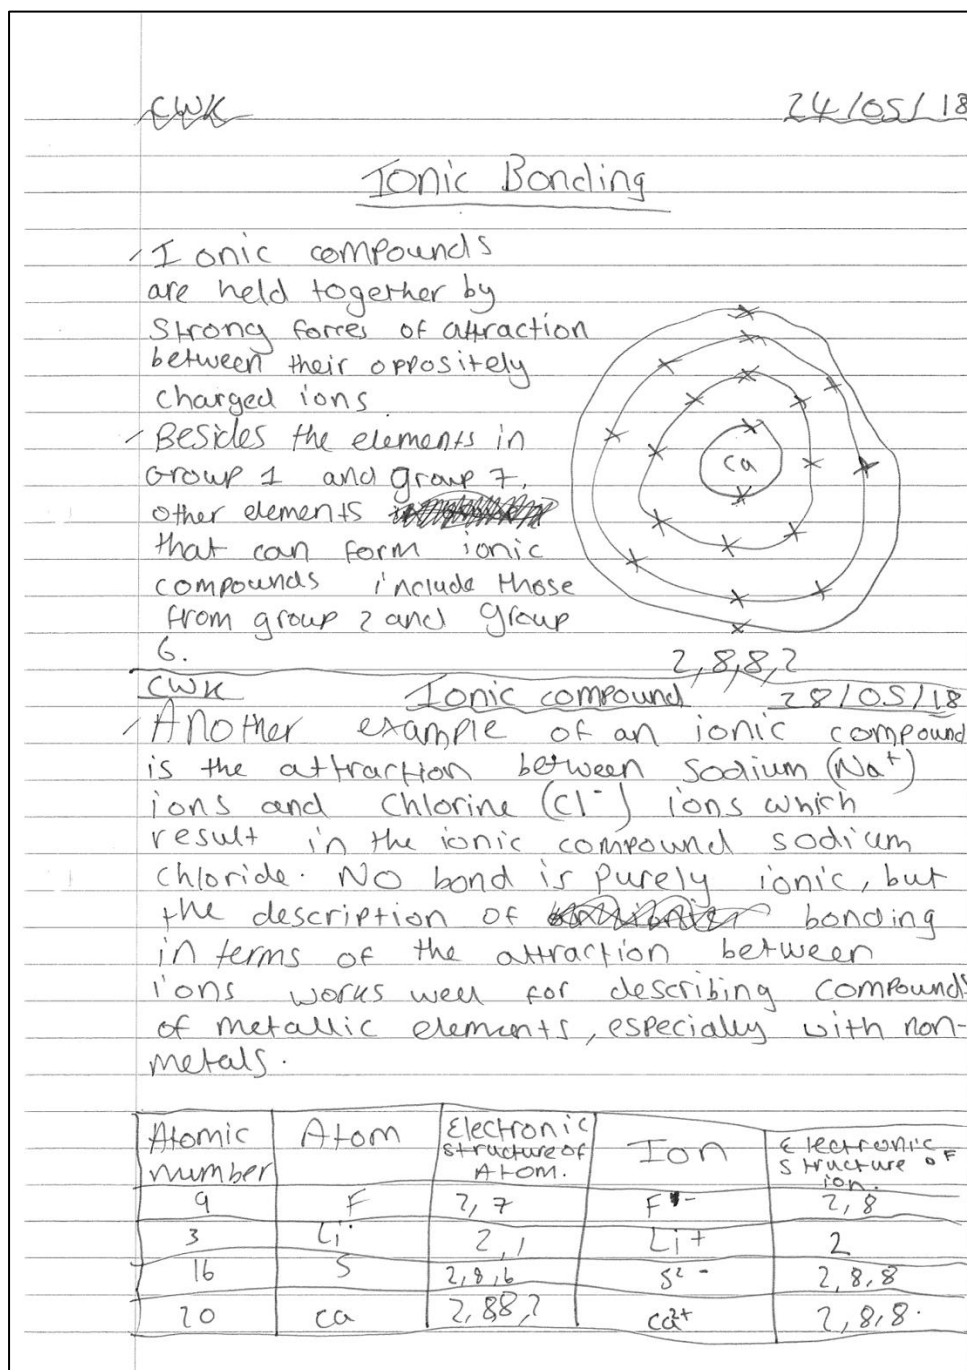 CWK 24/05/18
Ionic Bonding
Ionic compounds
are held together by
strong forces of attraction
between their oppositely
charged ions
Besides the elements in
Group 1 and group 7,
other elements
that can form ionic
compounds include those
from group 2 and group
6.
ca
2,8,8,2
CWK Ionic compound 28/05/18
Another example of an ionic compound
is the attraction between sodium (Na⁺)
ions and chlorine (Cl⁻) ions which
result in the ionic compound sodium
chloride. No bond is purely ionic, but
the description of bonding
in terms of the attraction between
ions works well for describing compounds
of metallic elements, especially with non-
metals.
Atomic number Atom Electronic structure of Atom. Ion Electronic structure of ion.
9 F 2,7 F⁻ 2,8
3 Li 2,1 Li+ 2
16 S 2,8,6 S²⁻ 2,8,8
20 ca 2,88,2 ca²⁺ 2,8,8.